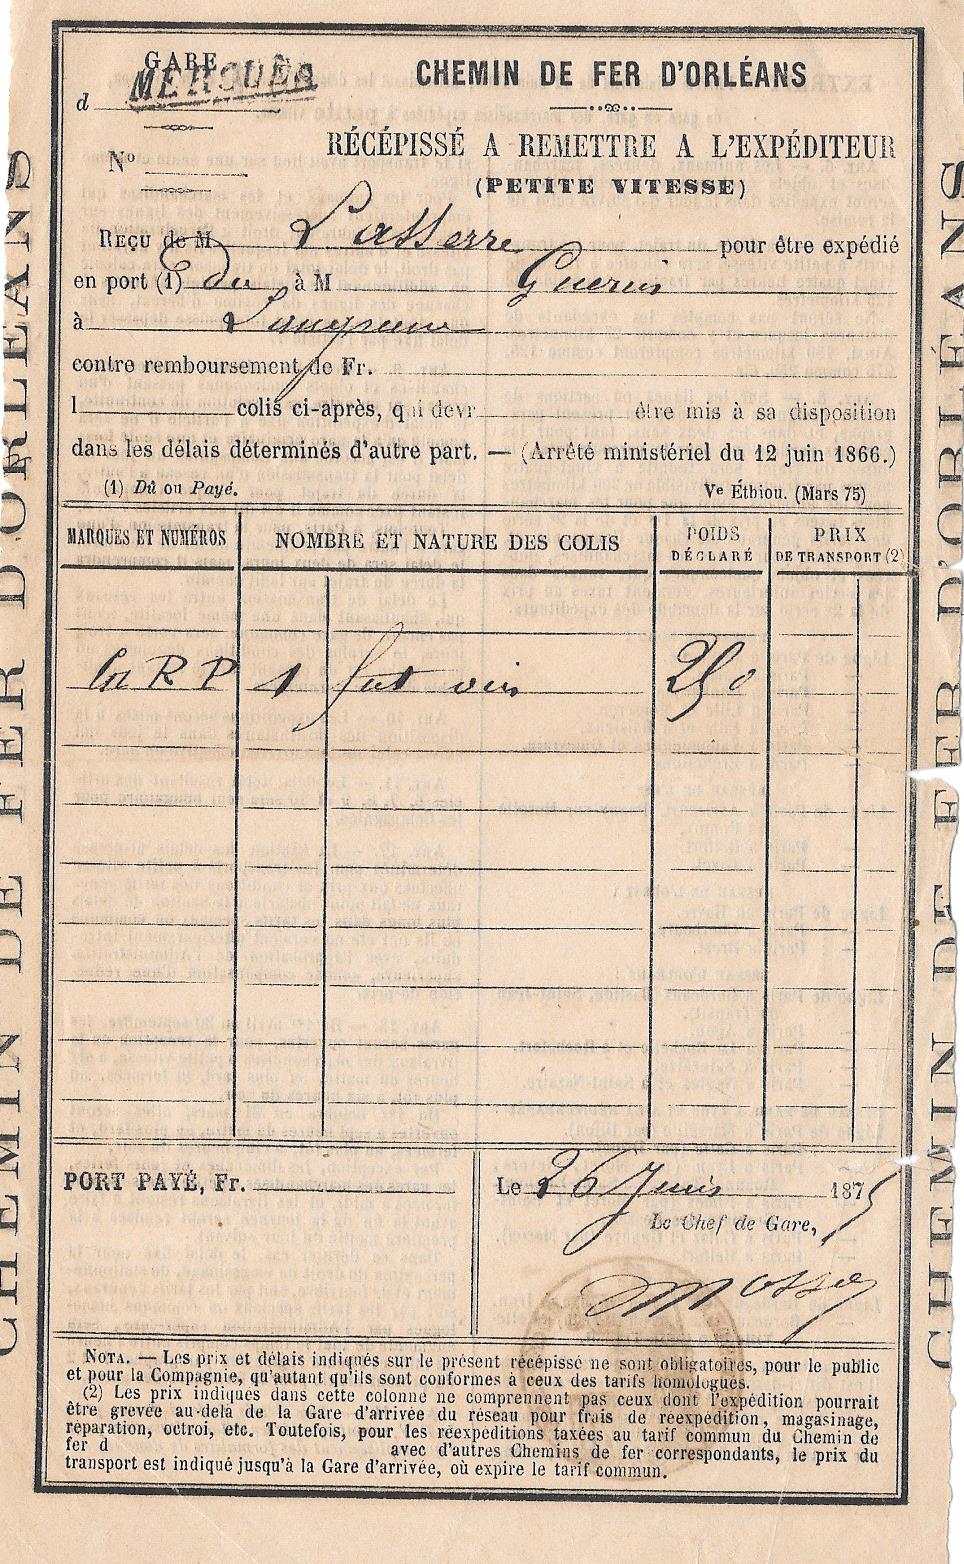 GARE
d MERCUÈS
CHEMIN DE FER D'ORLÉANS
Nº
RÉCÉPISSÉ A REMETTRE A L'EXPÉDITEUR
(PETITE VITESSE)
REÇU de M Lasserre pour être expédié
en port (1) du à M Guerin
à
contre remboursement de Fr.
l colis ci-après, qui devr être mis à sa disposition
dans les délais déterminés d'autre part. — (Arrêté ministériel du 12 juin 1866.)
(1) Dû ou Payé.
Ve Éthiou. (Mars 75)
MARQUES ET NUMÉROS
NOMBRE ET NATURE DES COLIS
POIDS DÉCLARÉ
PRIX DE TRANSPORT (2)
R P 1 fut vin 250
PORT PAYÉ, Fr.
Le 26 Juin 1875
Le Chef de Gare,
NOTA. — Les prix et délais indiqués sur le présent récépissé ne sont obligatoires, pour le public
et pour la Compagnie, qu'autant qu'ils sont conformes à ceux des tarifs homologués.
(2) Les prix indiqués dans cette colonne ne comprennent pas ceux dont l'expédition pourrait
être grevée au-delà de la Gare d'arrivée du réseau pour frais de réexpédition, magasinage,
réparation, octroi, etc. Toutefois, pour les réexpéditions taxées au tarif commun du Chemin de
fer d avec d'autres Chemins de fer correspondants, le prix du
transport est indiqué jusqu'à la Gare d'arrivée, où expire le tarif commun.
CHEMIN DE FER D'ORLÉANS
CHEMIN DE FER D'ORLÉANS